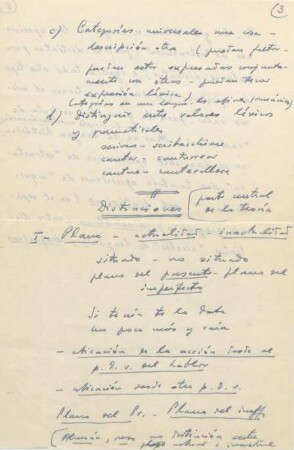 3
c) Categorías universales una cosa
descripción otra (pueden faltar
pueden estar expresadas conjunta-
mente con otras - pueden tener
expresión léxica)
Categorías en una lengua
d) Distinguir entre valores léxicos
y gramaticales
scrivere - scribacchiare
cantar - canturrear
cantare - cantarellare
Distinciones (parte central
de la teoría
I - Plano - actualidad - inactualidad
situado - no situado
plano del presente - plano del
imperfecto
Si tenía to la data
un poco más y caía
- ubicación de la acción desde el
p. d. v. del hablar
- ubicación desde otro p. d. v.
Plano del Pr. - Plano del impf.
(Alemán, no distinción entre
plano actual e inactual